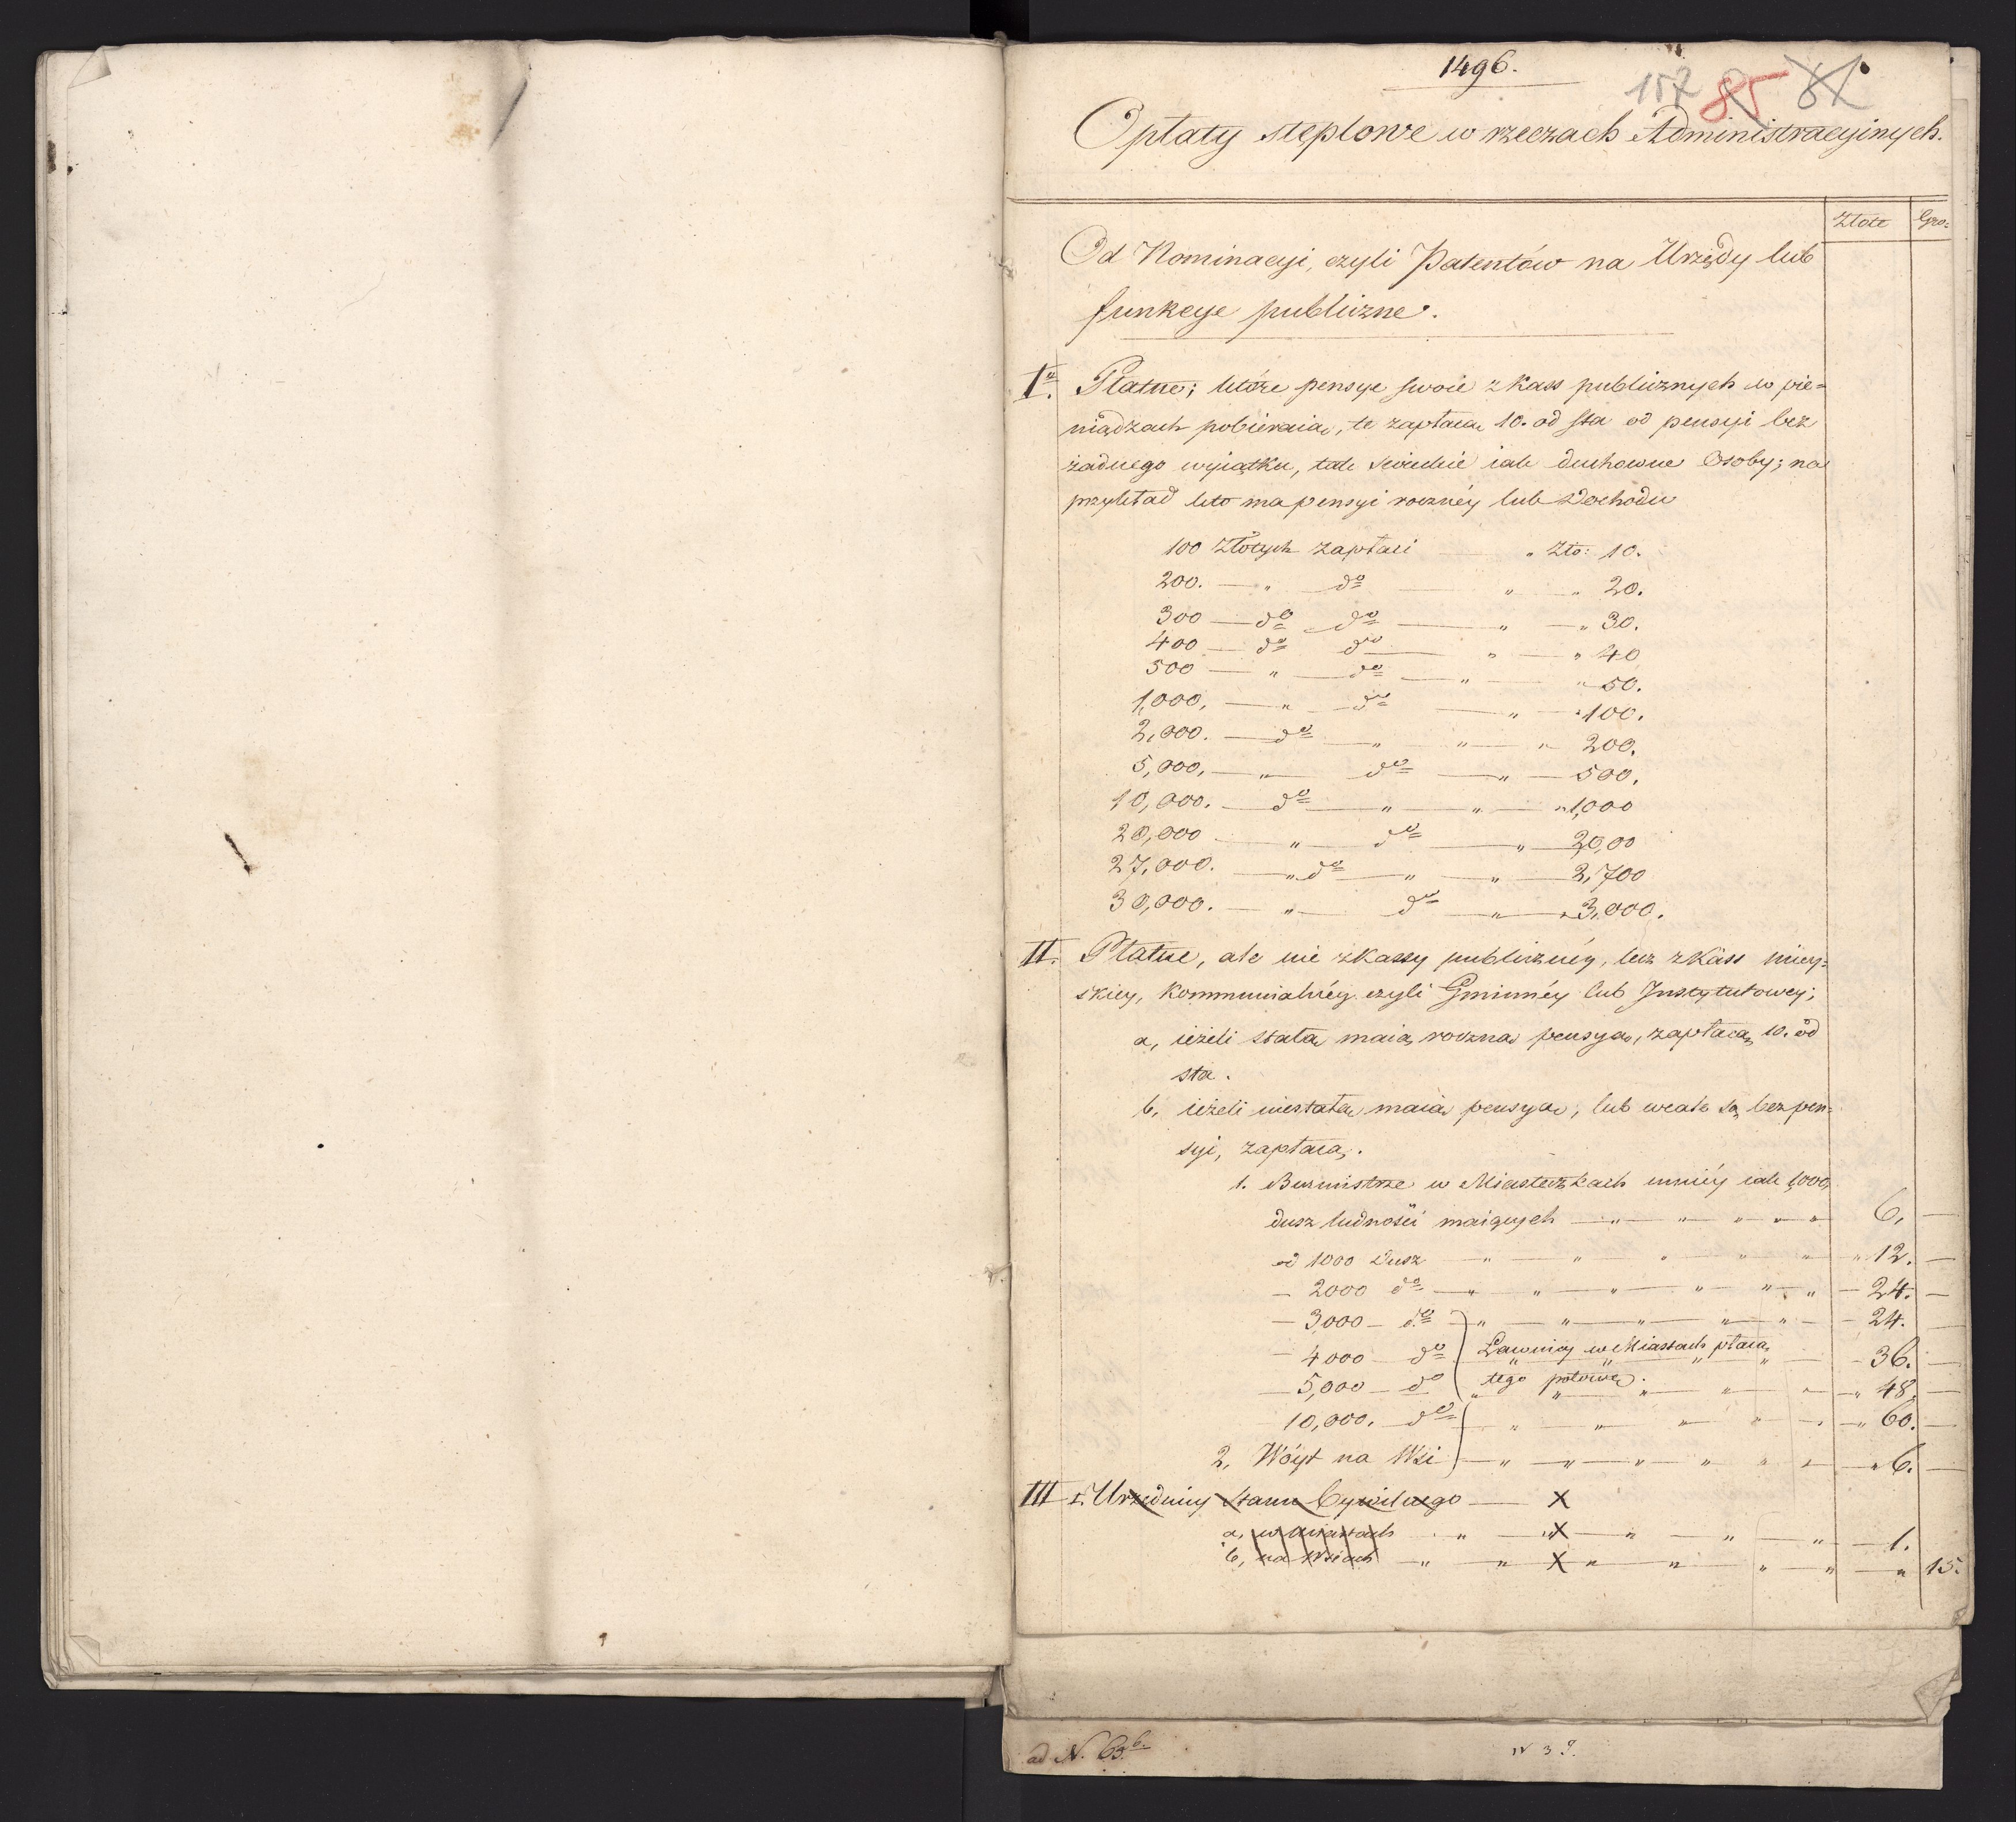 1496.
157 85 81
Opłaty stęplowe w rzeczach Administracyinych.
Złote Gro:
Od Nominacyi, czyli Patentów na Urzędy lub
funkcye publiczne.
I. Płatne; które pensye swoie z kass publicznych w pie=
niądzach pobieraią, te zapłacą 10. od sta od pensyi bez
żadnego wyiątku, tak świeckie iak duchowne Osoby; na
przykład kto ma pensyi roczney lub Dochodu
100 Złotych zapłaci " Zło: 10.
200. — " do " " 20.
300 — do do — " — " 30.
400 — do do — " — " 40
500 — " — do — " — " 50.
1,000, — " — do — " — " 100.
2,000. — do — " " — " 200.
5,000, — " — do — " — 500.
10,000. — do — " " — " 1,000
20,000 — " — do — " — 20,00
27,000. — " do — " — " — 2,700
30,000. — " — do — " — " 3,000.
II. Płatne, ale nie z kassy publiczney, lecz z Kass miey=
skiey, Kommunalney czyli Gminnéy lub Instytutowey;
a, ieżeli stałą maią roczną pensyą, zapłacą 10. od
sta.
b, ieżeli niestałą maią pensyą, lub wcale są bez pen=
syi, zapłacą.
1. Burmistrze w Miasteczkach mniéy iak 1,000
dusz ludności maiących — " — " — " — " — " 6, —
od 1000 Dusz — " — " " — " — " — " 12. —
— 2000 do — " — " — " — " — " " — 24. —
— 3000 — do — " — " — " — " — " — 24. —
— 4000 — do Ławnicy w Miastach płacą " — 36. —
— 5,000 — do tego połowę. " — " — " — " 48, —
10,000. do — " — " — " — " — " 60. —
2, Wóyt na Wsi — " — " — " — " " " — " 6. —
III 1. Urzędnicy Stanu Cywilnego — X
a, w miastach — " — X — " — " — " — 1.
b, na Wsiach — " — " X " — " — " — " — " 15.
ad N. 63. b.
N 39.